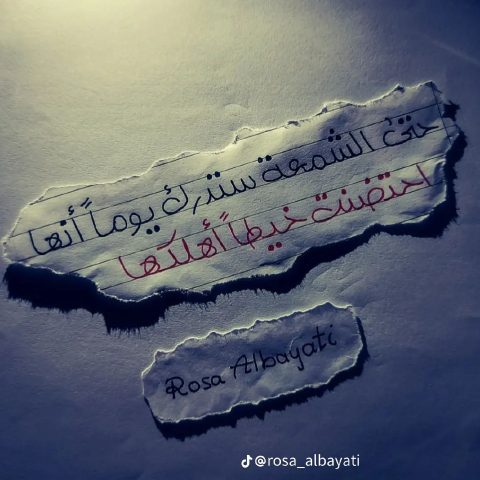 حتىٰ الشمعة ستدرك يوماً أنها
احتضنت خيطاً أهلكها
Rosa Albayati
@rosa_albayati